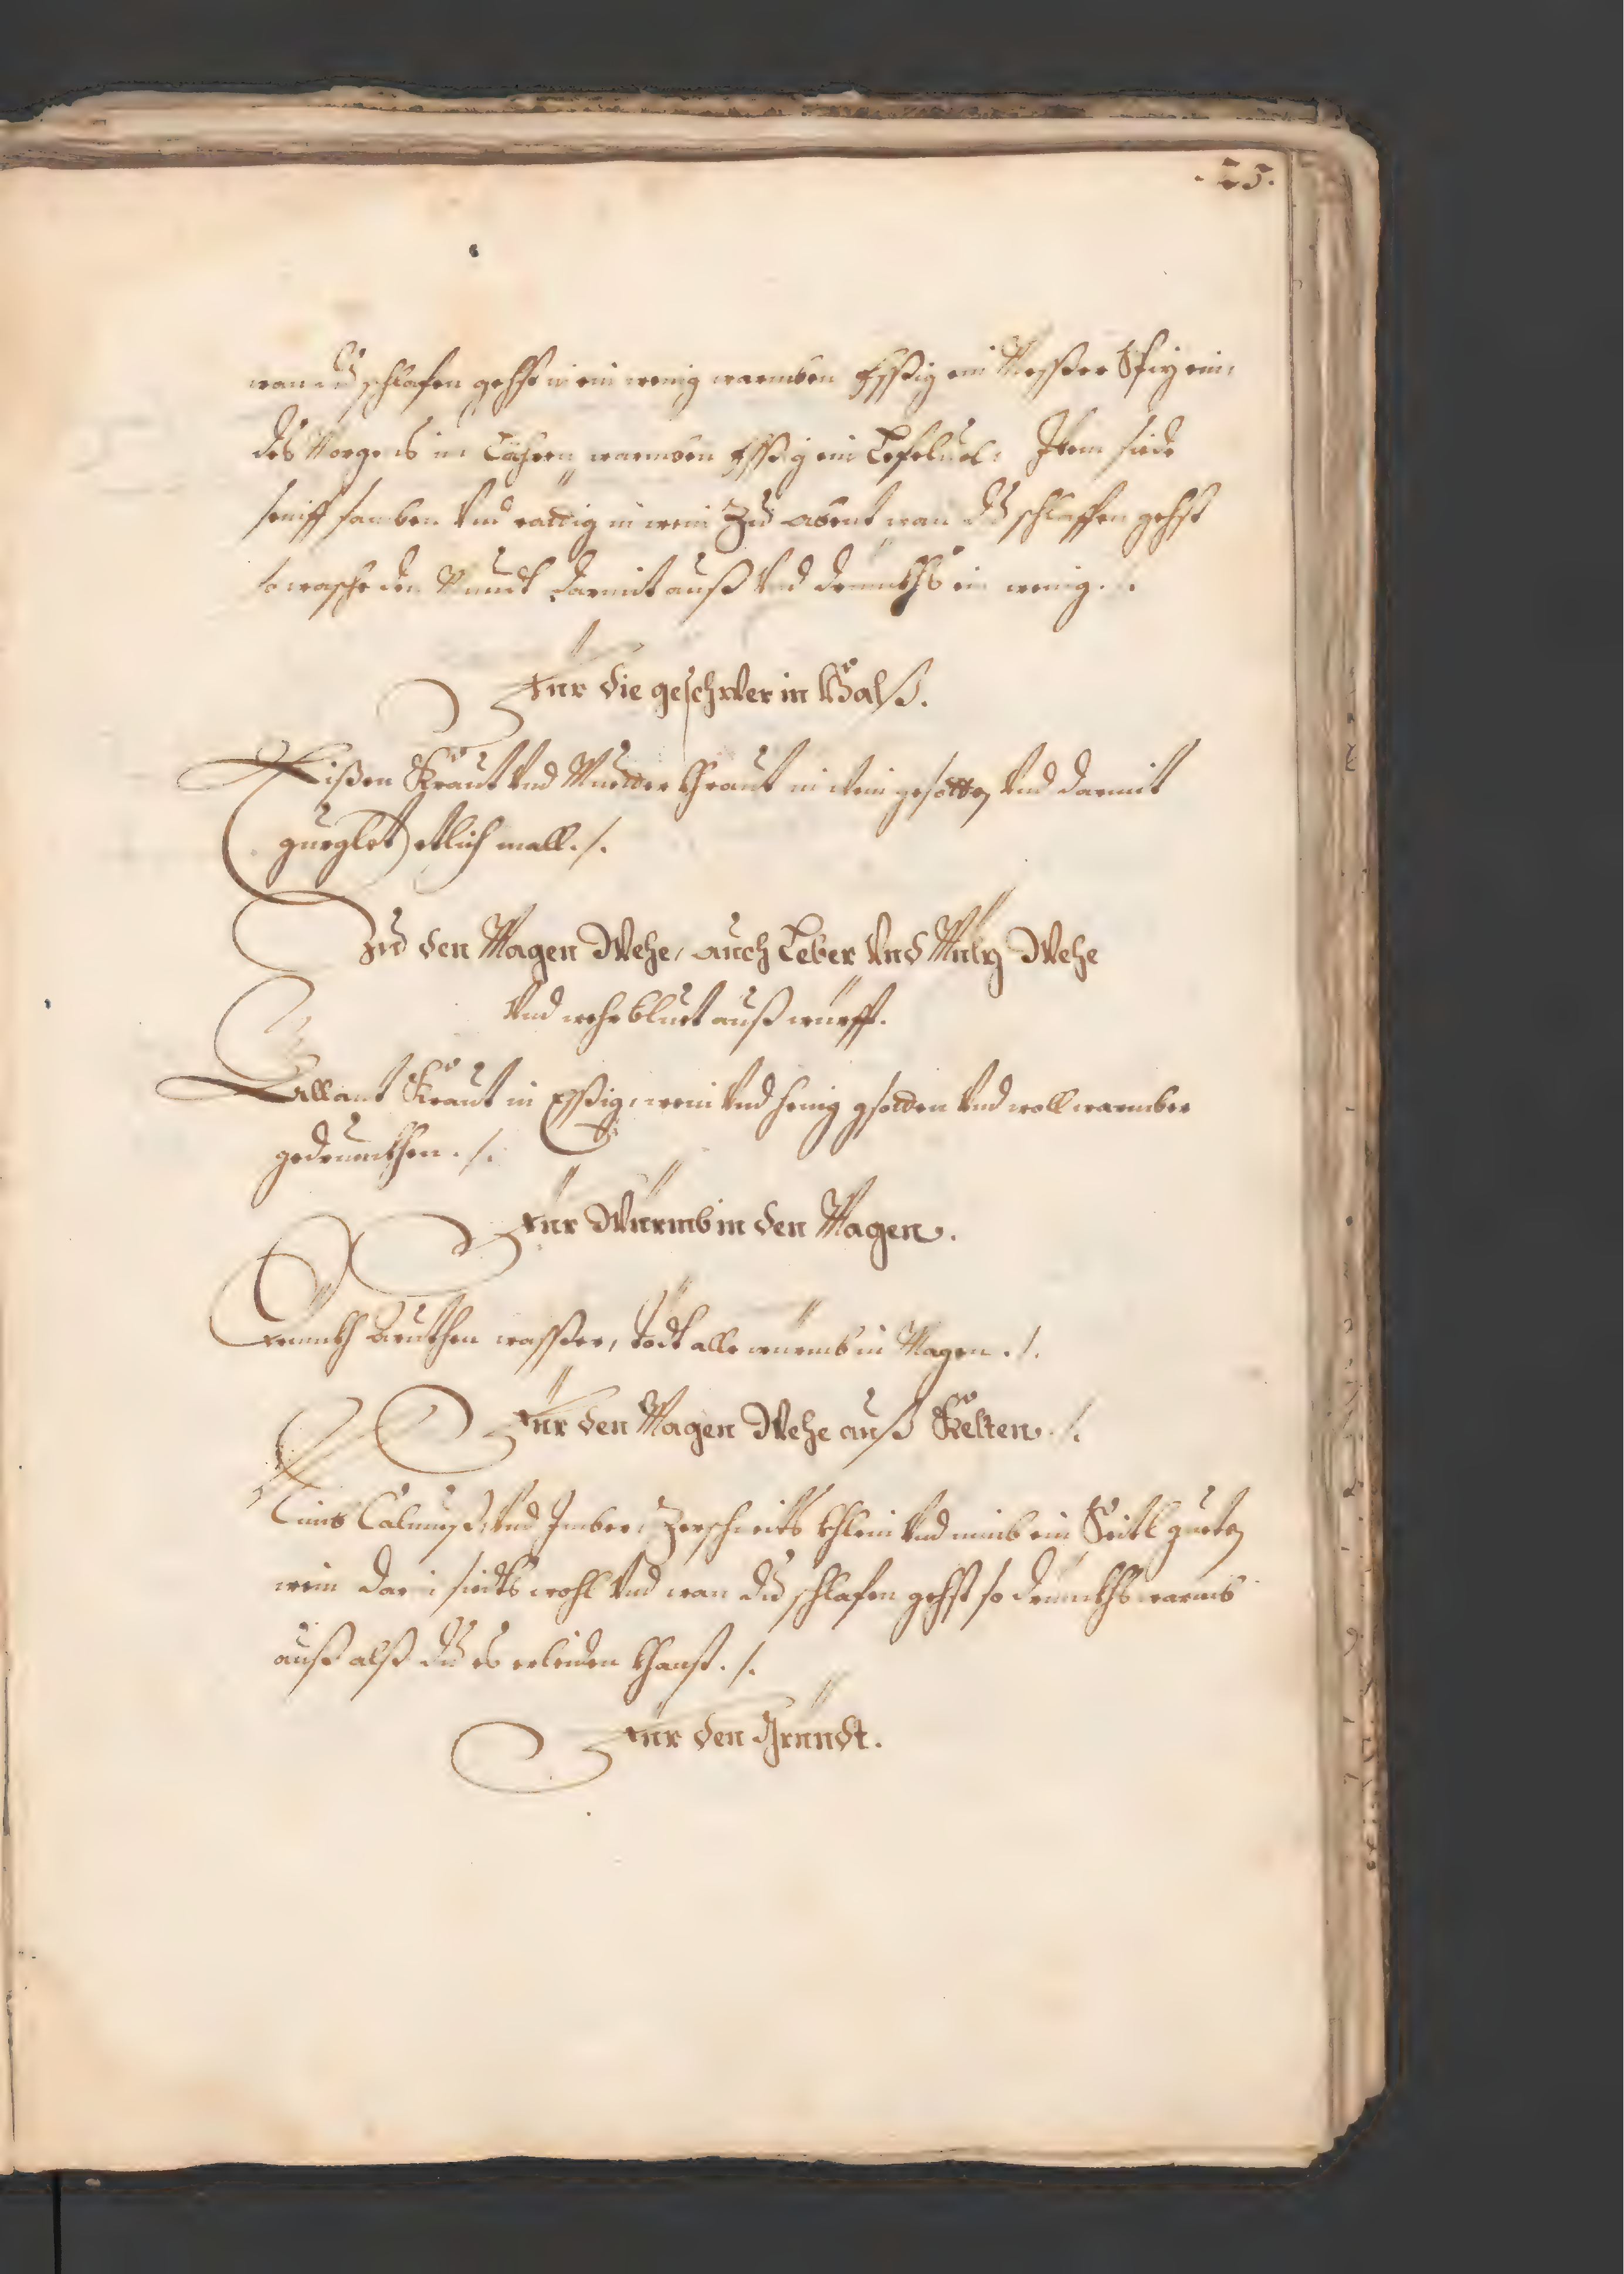 .25.
wan du schlafen gehst in ein wenig warmben Essßig ein Messßer Spiz ein,
des Morgens in warmben Esßig ein Lefel uol, Item siede
seniff samben Vnd rättig in wein Zu abent wan du schlaffen gehst
so wasche den Mundt darmit auß Vnd drinckhs ein wenig ./.
Für die geschwer in Halß.
Eißen Kraut Vnd Muetter khraut in wein gesotten Vnd darmit
gurglet etlich mall ./.
Zu den Magen Wehe, auch Leber Vnd Miltz Wehe
Vnd wehr bluet auß würfft.
Allant Kraut in Esßig, wein Vnd henig gsotten Vnd woll warmber
gedrunckhen ./.
Für Würmb in den Magen.
Trinckh wasßer, tödt alle würmb in Magen ./.
Für den Magen Wehe auß Kelten ./.
Nimb Calmuß, Vnd Imber, Zerschneits khlein Vnd nimb ein Seitl gueten
wein darein siedts wohl Vnd wan du schlafen gehst so drinckhs warmb
auß alß du es erleiden khanst ./.
Für den Grindt.